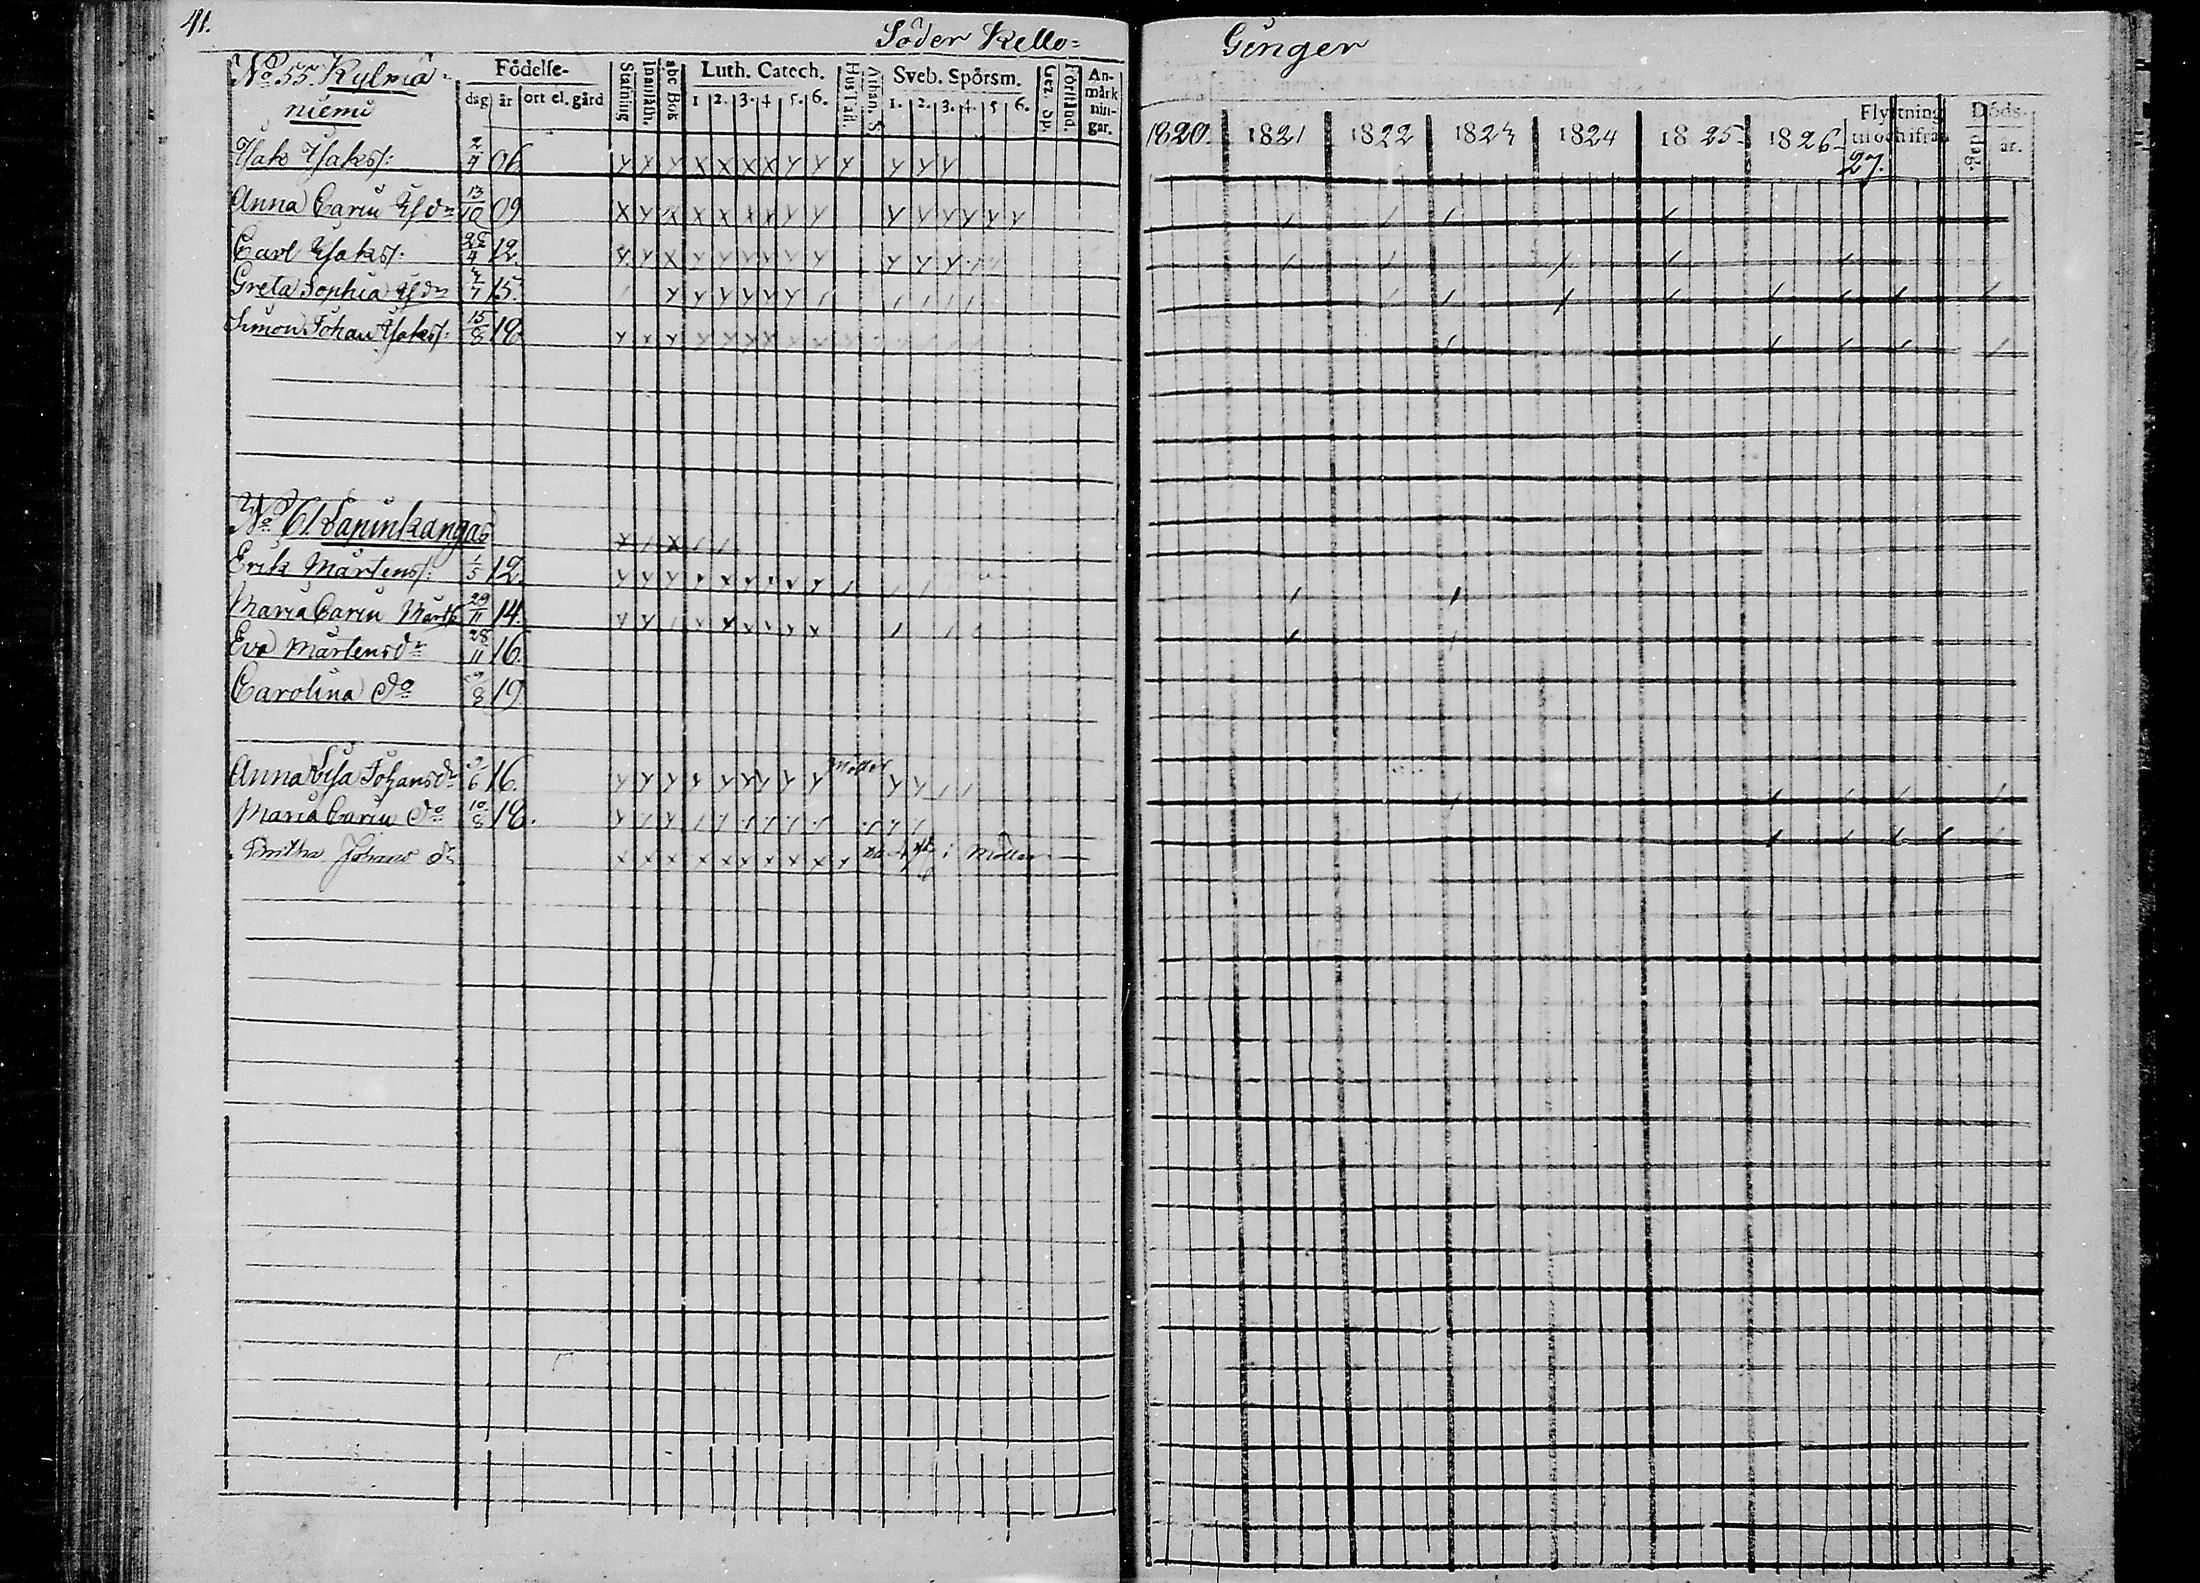 41.
Söder Kello=
Ginger
No 55. Kylmä=
niemi
Födelse-
dag år ort el. gård
Stafning
Innanläsn.
abc Bok
Luth. Catech.
1 2. 3. 4 5. 6.
Hustafl.
Athan. S.
Sveb. Spörsm.
1. 2. 3. 4. 5 6.
Gez. Sp.
Förstånd.
An-
märk
nin-
gar.
1820. 1821 1822 1823 1824 1825 1826
Flyttning
til och ifrån
27.
Döds-
dag. år.
Isak Isakss: 2/4 06.
Anna Carin Isdr 13/10 09
Carl Isakss: 4 12.
Greta Sophia Isdr 7 15.
Simon Johan Isakss: 15/8 18.
No 61. Lapinkangas
Erik Mårtenss: 1/5 12.
Maria Carin Mårt 29/11 14.
Eva Mårtensdr 28/11 16.
Carolina do 8 19.
Anna Lisa Johansdr 6 16. möller
Maria Carin do 10/8 18.
Britha Johans dr i Möller